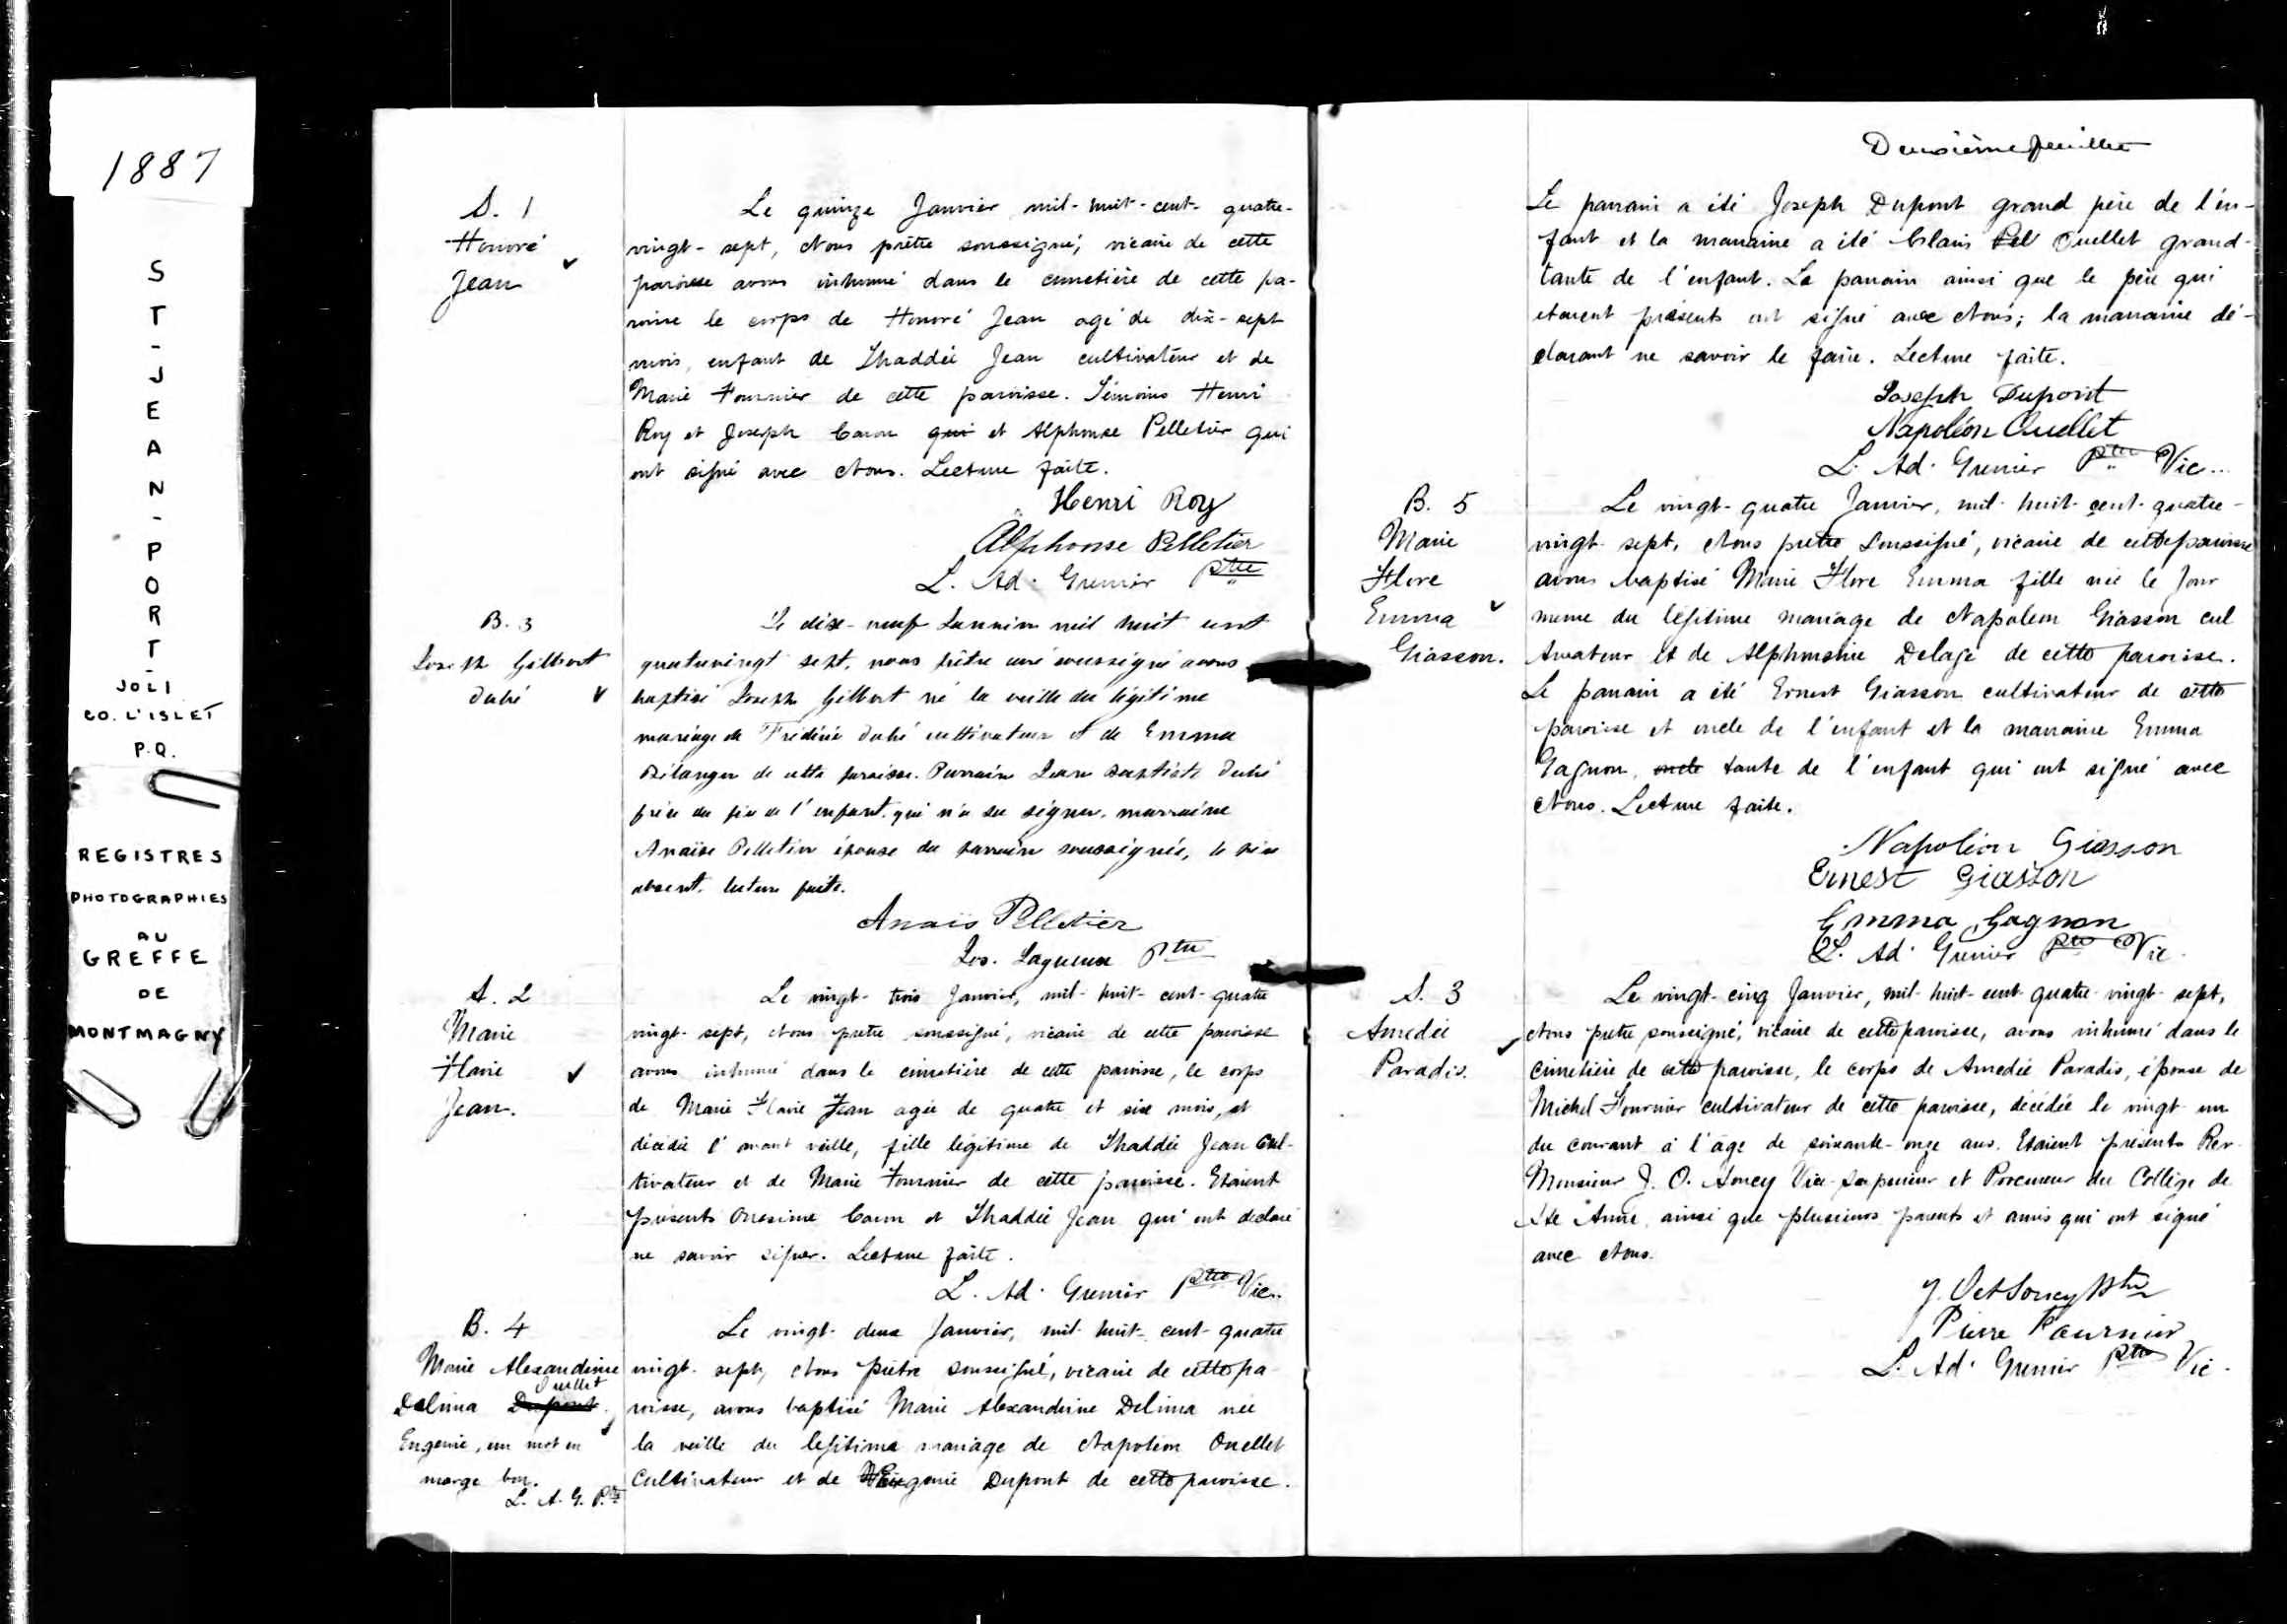 1887
ST-JEAN-PORT-
JOLI
CO. L'ISLET
P.Q.
REGISTRES
PHOTOGRAPHIES
AU
GREFFE
DE
MONTMAGNY
S. 1
Honoré
Jean
Le quinze Janvier mil-huit-cent-quatre-
vingt-sept, Nous prêtre soussigné, vicaire de cette
paroisse avons inhumé dans le cimetière de cette pa-
roisse le corps de Honoré Jean agé de dix-sept
mois, enfant de Thaddée Jean cultivateur et de
Marie Fournier de cette paroisse. Témoins Henri
Roy et Joseph Caron qui et Alphonse Pelletier qui
ont signé avec Nous. Lecture faite.
Henri Roy
Alphonse Pelletier
L. Ad. Grenier Ptre
B. 3
Joseph Gilbert
Dubé
Le dix-neuf Janvier mil huit cent
quatrevingt sept, nous prêtre curé soussigné avons
baptisé Joseph Gilbert né la veille du légitime
mariage de Frédéric Dubé cultivateur et de Emma
Bélanger de cette paroisse. Parrain Jean Baptiste Dubé
frère du père de l'enfant qui n'a su signer, marraine
Anaïse Pelletier épouse du parrain soussignée, le père
absent. lecture faite.
Anaïs Pelletier
Jos. Lagueux Ptre
S. 2
Marie
Flavie
Jean.
Le vingt-trois Janvier, mil-huit-cent-quatre
vingt-sept, Nous pretre soussigné, vicaire de cette paroisse
avons inhumé dans le cimetière de cette paroisse, le corps
de Marie Flavie Jean agée de quatre et six mois, et
décédée l'avant veille, fille légitime de Thaddée Jean Cul-
tivateur et de Marie Fournier de cette paroisse. Etaient
présents Onesime Caron et Thaddée Jean qui ont declaré
ne savoir signer. Lecture faite.
L. Ad. Grenier Ptre Vic..
B. 4
Marie Alexandrine
Ouellet
Delima Dupont.
Eugenie, un mot en
marge bon.
L. A. G. Ptre
Le vingt-deux Janvier, mil-huit-cent-quatre
vingt-sept, Nous prêtre soussigné, vicaire de cette pa
roisse, avons baptisé Marie Alexandrine Delima née
la veille du legitime mariage de Napoléon Ouellet
Cultivateur et de Eugenie Dupont de cette paroisse.
Deuxième feuillet
Le parrain a été Joseph Dupont grand père de l'en-
fant et la marraine a été Clairis Pel Ouellet grand-
tante de l'enfant. Le parrain ainsi que le père qui
etaient présents ont signé avec Nous; la marraine dé-
clarant ne savoir le faire. Lecture faite.
Joseph Dupont
Napoléon Ouellet
L. Ad. Grenier Ptre Vic...
B. 5
Marie
Flore
Emma
Giasson.
Le vingt-quatre Janvier, mil-huit-cent-quatre-
vingt-sept, Nous pretre soussigné, vicaire de cette paroisse
avons baptisé Marie Flore Emma fille née le jour
meme du légitime mariage de Napoleon Giasson cul
tivateur et de Alphonsine Delage de cette paroisse.
Le parrain a été Ernest Giasson cultivateur de cette
paroisse et oncle de l'enfant et la marraine Emma
Gagnon, oncle tante de l'enfant qui ont signé avec
Nous. Lecture faite.
Napoléon Giasson
Ernest Giasson
Emma Gagnon
L. Ad. Grenier Ptre Vic.
S. 3
Amedée
Paradis.
Le vingt-cinq Janvier, mil-huit-cent quatre-vingt-sept,
Nous pretre soussigné, vicaire de cette paroisse, avons inhumé dans le
cimetière de cette paroisse, le corps de Amedée Paradis, épouse de
Michel Fournier cultivateur de cette paroisse, décédée le vingt-un
du courant à l'âge de soixante-onze ans. Etaient présents Rev.
Monsieur J. O. Soucy Vice-Supérieur et Procureur du Collège de
Ste Anne, ainsi que plusieurs parents et amis qui ont signé
avec Nous.
J. Oct Soucy Ptre
Pierre Fournier
L. Ad. Grenier Ptre Vic.